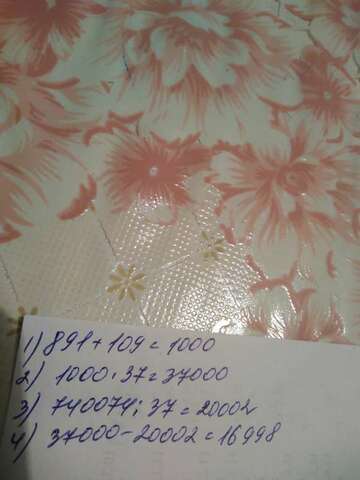 1) 891 + 109 = 1000
2) 1000 · 37 = 37000
3) 740074 : 37 = 20002
4) 37000 - 20002 = 16998